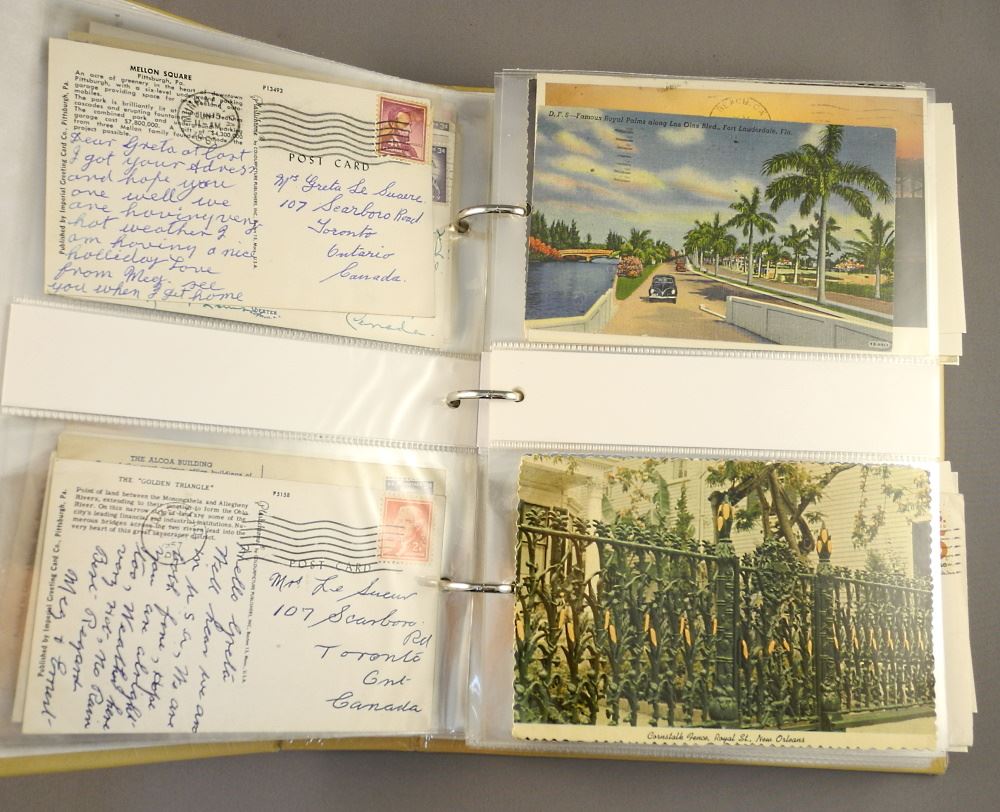 MELLON SQUARE
Pittsburgh, Pa.
An acre of greenery in the heart of downtown
Pittsburgh, with a six-level underground parking
garage providing space for
mobiles.
The park is brilliantly lit at
cascades and erupting fountains
The combined park and
garage cost $7,800,000. A gift of $4,300,000
from three Mellon family foundations made the
project possible.
P13492
POST CARD
Published by Imperial Greeting Card Co., Pittsburgh, Pa.
Dear Greta at last
I got your Adress
and hope you
are well we
are having very
hot weather I
am having a nice
holliday Love
from Meg. see
you when I get home
Mrs Greta Le Sueure
107 Scarboro Road
Toronto
Ontario
Canada.
Canada.
D.F.8—Famous Royal Palms along Las Olas Blvd., Fort Lauderdale, Fla.
THE ALCOA BUILDING
THE "GOLDEN TRIANGLE"
Point of land between the Monongahela and Allegheny
Rivers, extending to their junction to form the Ohio
River. On this narrow strip of land are some of the
city's leading financial and industrial institutions. Nu-
merous bridges across the two rivers lead into the
very heart of this great skyscraper district.
P5158
POST CARD
Published by Imperial Greeting Card Co., Pittsburgh, Pa.
Hello Greta
Well hear we are
in U.S.A, We are
both fine, Hope
you are alright
too, Weather here
very hot, No Rain
Best Regards
Meg & Ernie
Mrs Le Sueur
107 Scarboro
Rd
Toronto
Ont-
Canada
2¢
Cornstalk Fence, Royal St., New Orleans